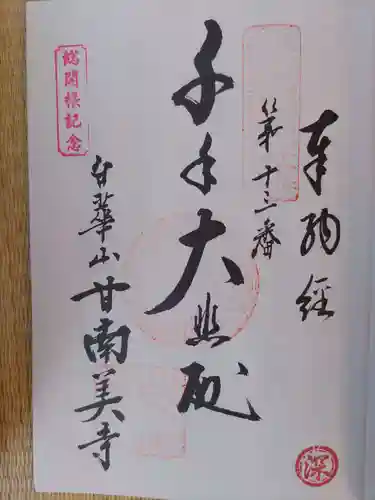 奉納経
第十三番
千手大悲殿
白華山甘南美寺
総開帳記念
深